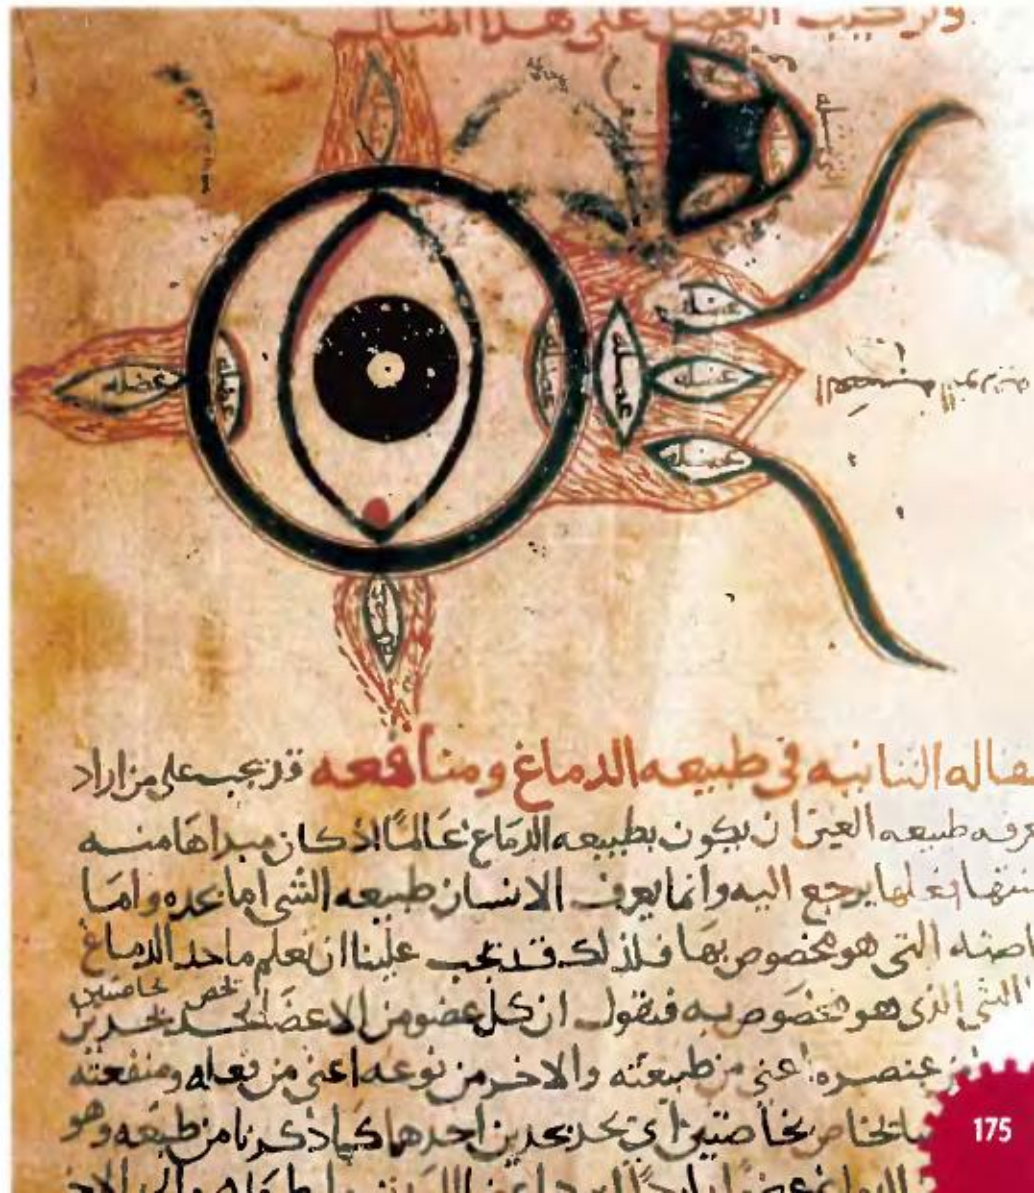 وتركيب العضل على هذا المثال
عضله
عضله
عضله
عضله
عضله
عضله
عضله
عضله
العصبه النوريه
ـقاله الثانيه فى طبيعه الدماغ ومنافعه قد يجب على من اراد
ـعرفه طبيعه العين ان يكون بطبيعه الدماغ عالمًا اذ كان مبداها منه
ـنتها فعلها يرجع اليه وانما يعرف الانسان طبيعه الشى اما بحده واما
ـاصته التى هو مخصوص بها فلذلك قد يجب علينا ان نعلم ما حد الدماغ
الشى الذى هو مخصوص به فنقول ان كل عضو من الاعضا يحد بحدين يخص بخاصتين
من عنصره اعنى من طبيعته والاخر من نوعه اعنى من فعله ومنفعته
بخاصتين اى يحد بحدين احدهما كما ذكرنا من طبعه وهو
175